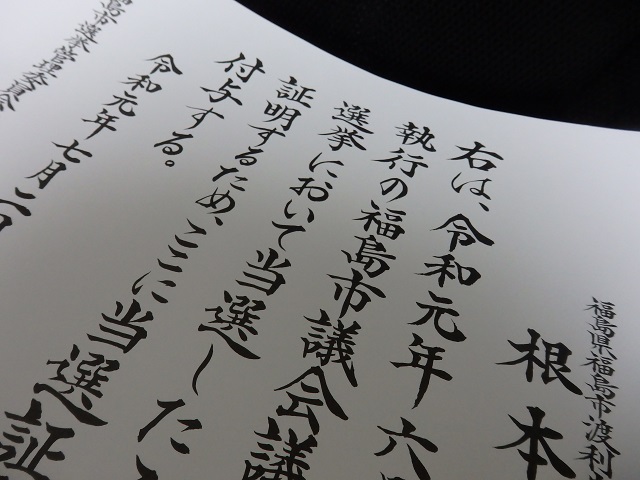 福島県福島市渡利
根本
右は、令和元年六月
執行の福島市議会議
選挙において当選した
証明するため、ここに当選証
付与する。
令和元年七月二
島市選挙管理委員会